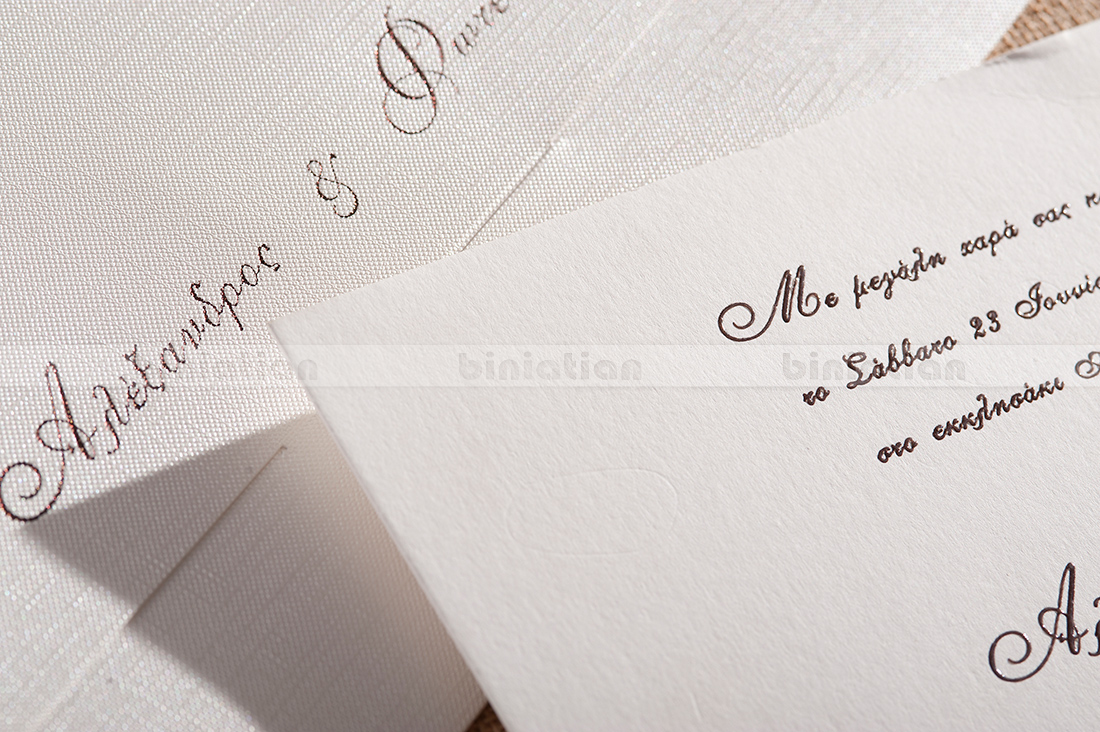 Αλέξανδρος & Φανε
Με μεγάλη χαρά σας
το Σάββατο 23 Ιουνίο
στο εκκλησάκι
Αλ
biniatian biniatian